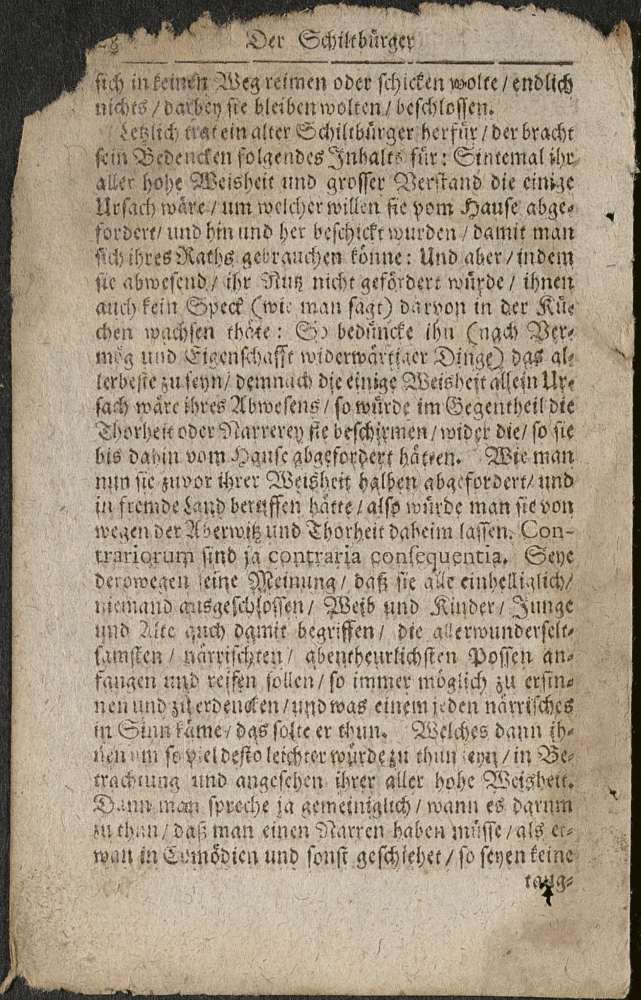 Der Schiltbürger
sich in keinen Weg reimen oder schicken wolte / endlich
nichts / darbey sie bleiben wolten / beschlossen.
Letzlich trat ein alter Schiltbürger herfür / der bracht
sein Bedencken folgendes Inhalts für: Sintemal ihr
aller hohe Weisheit und grosser Verstand die einige
Ursach wäre / um welcher willen sie vom Hause abge-
fordert / und hin und her beschickt wurden / damit man
sich ihres Raths gebrauchen könne: Und aber / indem
sie abwesend / ihr Nutz nicht gefördert würde / ihnen
auch kein Speck (wie man sagt) darvon in der Kü-
chen wachsen thäte: So bedüncke ihn (nach Ver-
mög und Eigenschafft widerwärtiger Dinge) das al-
lerbeste zu seyn / demnach die einige Weisheit allein Ur-
sach wäre ihres Abwesens / so würde im Gegentheil die
Thorheit oder Narrerey sie beschirmen / wider die / so sie
bis dahin vom Hause abgefordert hätten. Wie man
nun sie zuvor ihrer Weisheit halben abgefordert / und
in fremde Land beruffen hätte / also würde man sie von
wegen der Aberwitz und Thorheit daheim lassen. Con-
trariorum sind ja contraria consequentia. Seye
derowegen seine Meinung / daß sie alle einhelliglich /
niemand ausgeschlossen / Weib und Kinder / Junge
und Alte auch damit begriffen / die allerwunderselt-
samsten / närrischten / abentheurlichsten Possen an-
fangen und reissen sollen / so immer möglich zu ersin-
nen und zu erdencken / und was einem jeden närrisches
in Sinn käme / das solte er thun. Welches dann ih-
nen um so viel desto leichter würde zu thun seyn / in Be-
trachtung und angesehen ihrer aller hohe Weisheit.
Dann man spreche ja gemeiniglich / wann es darum
zu thun / daß man einen Narren haben müsse / als et-
wan in Comödien und sonst geschiehet / so seyen keine
taug-